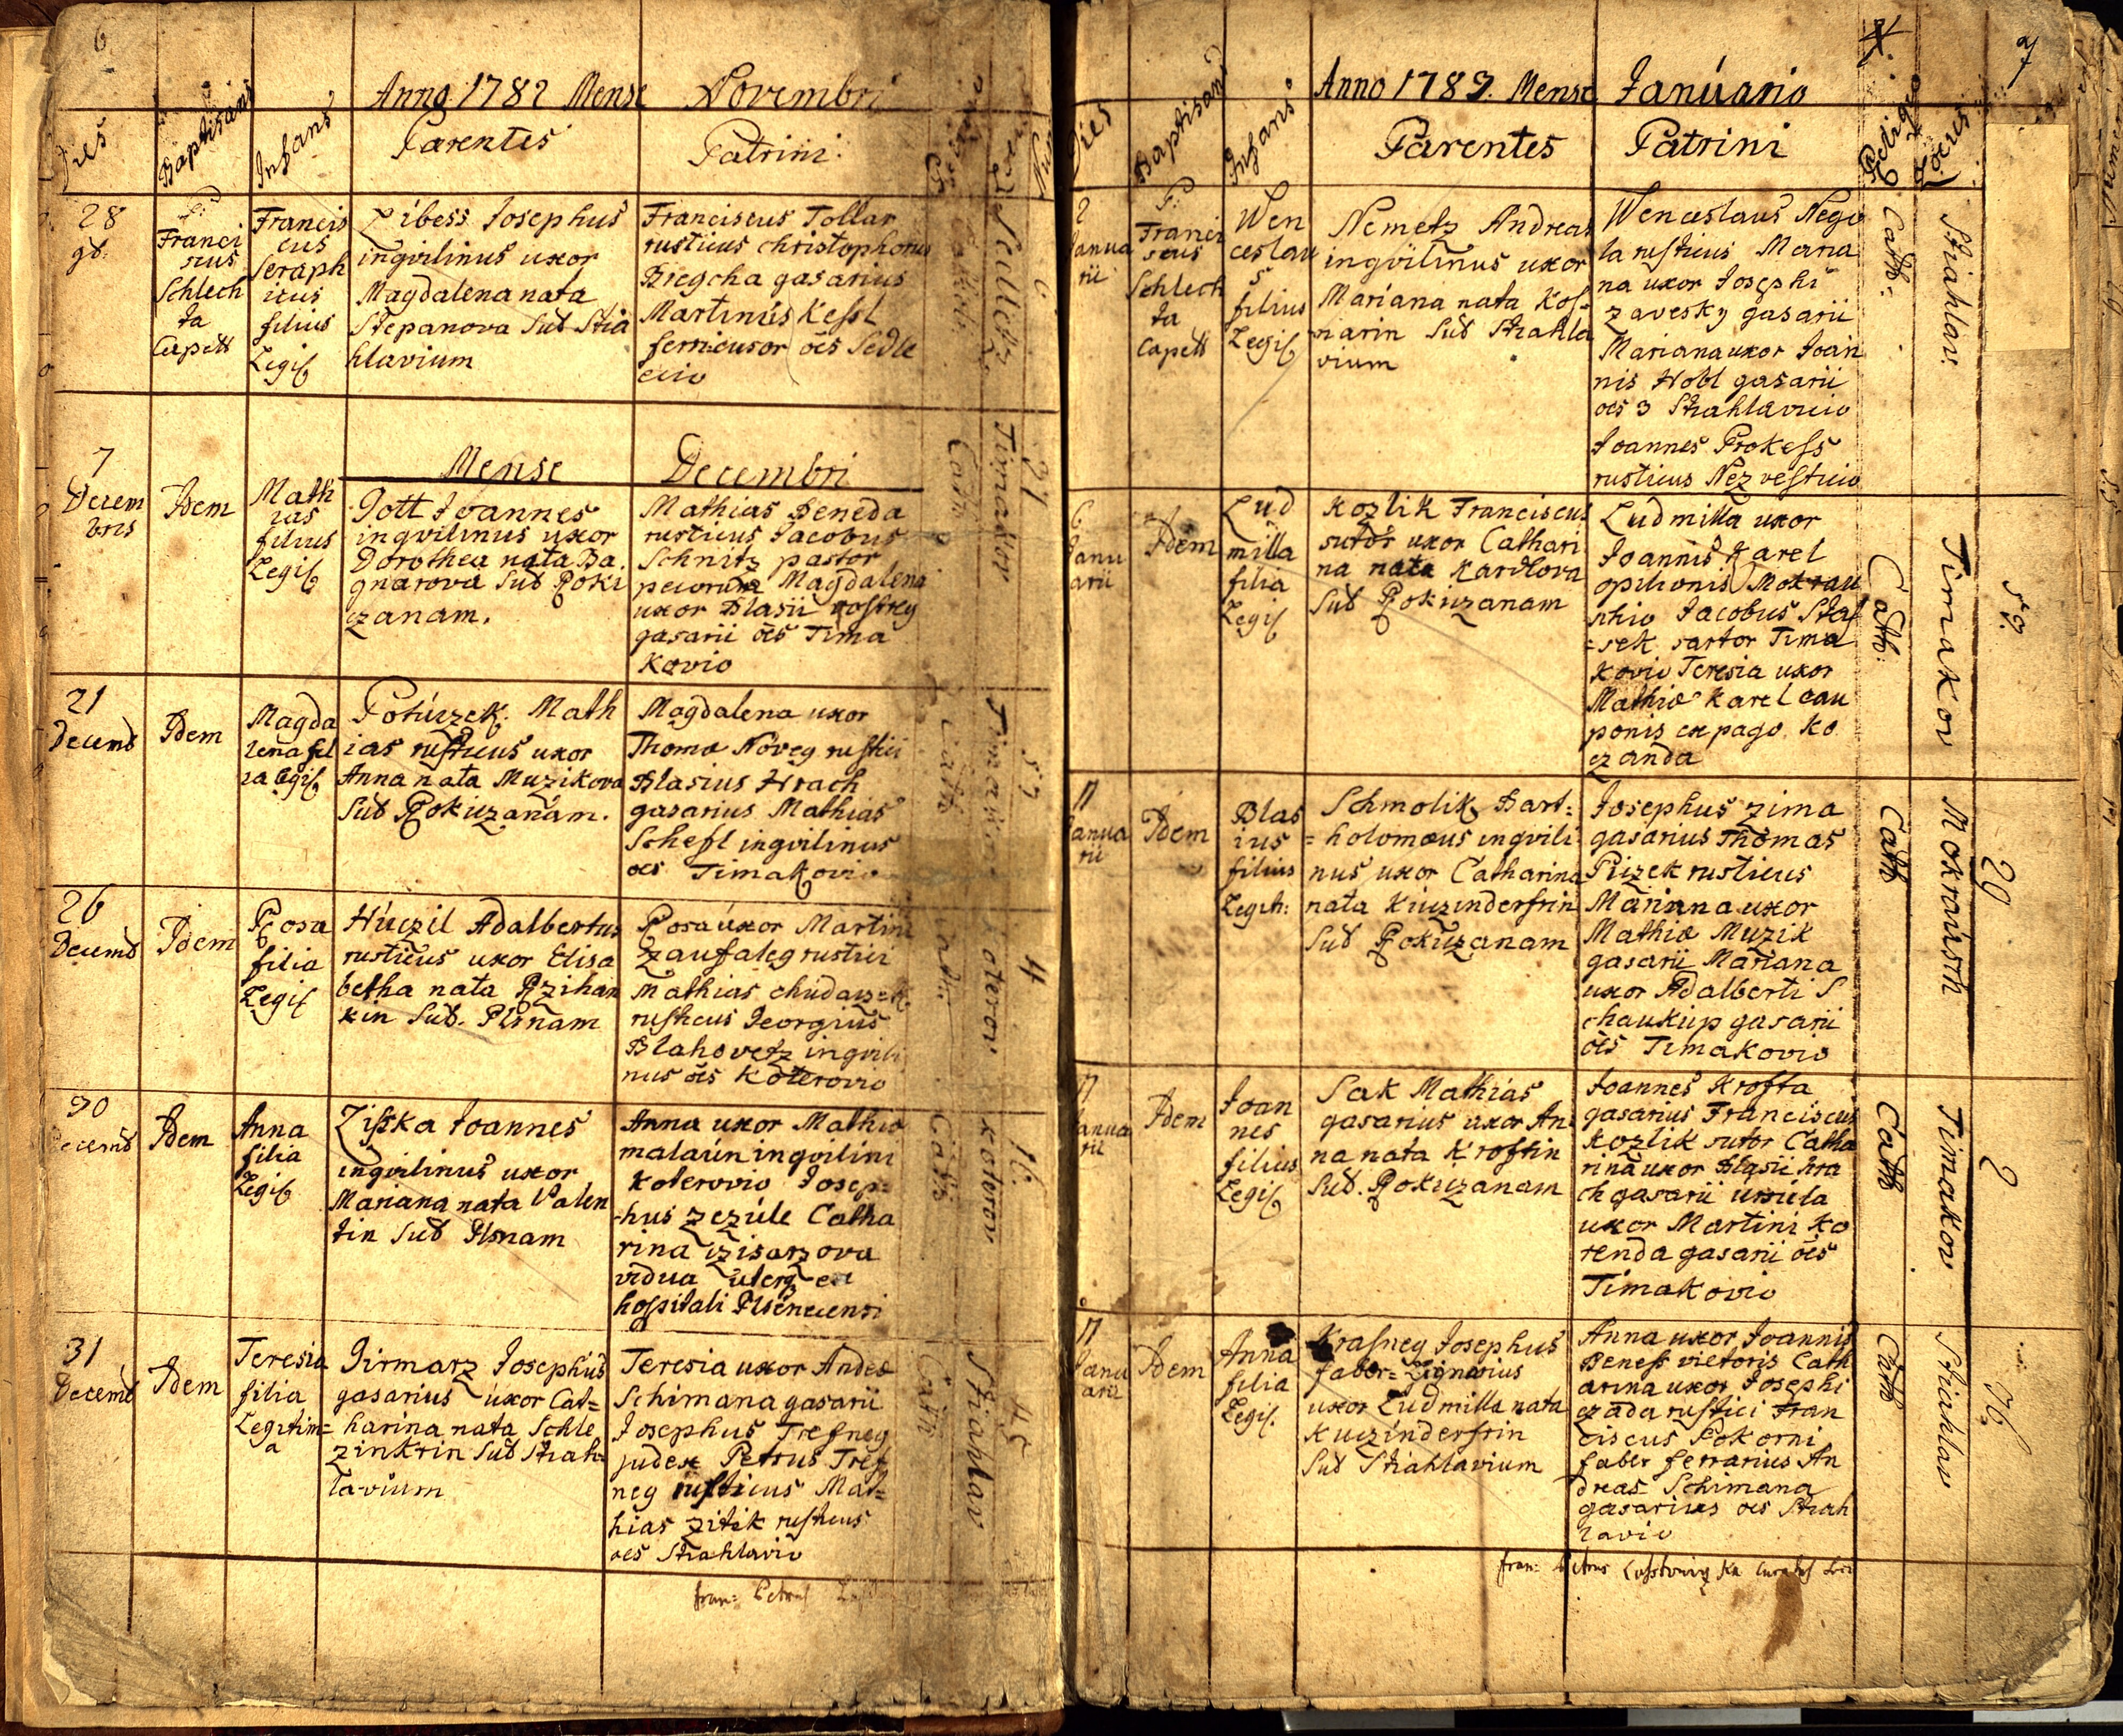 6
Anno 1782 Mense Novembri
Dies
Baptisans
Infans
Parentes
Patrini
28
9b.
P: D
Franci
scus
Schlech
ta
Capell
Francis
cus
Seraph
icus
filius
Legis
Josephus
ingvilinus uxor
Magdalena nata
Stepanova Sub Stia
hlavium
Franciscus Tollar
rusticus Christophorus
Bregcha gasarius
Martinus Kessl
oēs Sedle
cio
Cath:
Sedletz
6
Mense Decembri
7
Decem
bris
Idem
Math
ias
filius
Legis
Gott Joannes
ingvilinus uxor
Dorothea nata Ba
gnarova Sub Roki
zanam.
Mathias Beneda
rusticus Jacobus
Schnitz pastor
pecorum Magdalena
uxor Blasii
gasarii oēs Tima
Kovio
Cath
Timakov
21
21
Decemb
Idem
Magda
lena fil
ia Legis
Potuczek. Math
ias rusticus uxor
Anna nata Muzikova
Sub Rokuzanam.
Magdalena uxor
Thomæ Noveg rustici
Blasius Hrach
gasarius Mathias
Schefl ingvilinus
oēs Timakovio
Cath
Timakov
53
26
Decemb
Idem
Rosa
filia
Legis
Huczil Adalbertus
rusticus uxor Elisa
betha nata Rzihan
kin Sub. Plsnam
Rosa uxor Martini
Zaufaleg rustici
Mathias
rusticus Georgius
Blahovetz ingvili
nus oēs Koterovio
Cath:
Koterov
4
30
Decemb
Idem
Anna
filia
Legis
Zisska Joannes
ingvilinus uxor
Mariana nata Valen
tin Sub Plsnam
Anna uxor Mathiæ
malaun ingvilini
Koterovio Josep=
hus Zezule Catha
rina
vidua
hospitali
Cath
Koterov
16
31
Decemb
Idem
Teresia
filia
Legitim=
a
Jirmarz Josephus
gasarius uxor Cat=
harina nata Schle
zinkrin Sub Stiah=
lavium
Teresia uxor Andeæ
Schimana gasarii
Josephus Tresneg
judex Petrus Tres
neg rusticus Mat=
hias Zitek rusticus
oes Stiahlavio
Cath
Stiahlav
45
fran: Petrus
7
Anno 1783. Mense Januario
Dies
Baptisans
Infans
Parentes
Patrini
Religio
Locus
2
Janua
rii
P: D
Franci
scus
Schlech
ta
Capell
Wen
ceslau
s
filius
Legis
Nemetz Andreas
ingvilinus uxor
Mariana nata Kos=
narin Sub Stiahla
vium
Wenceslaus Nego
la rusticus Maria
na uxor Josephi
Zavesky gasarii
Mariana uxor Joan
nis Hobl gasarii
oēs 3 Stiahlavicio
Joannes Prokess
rusticus Nezvesticio
Cath:
Stiahlav
6
Janu
arii
Idem
Lud
milla
filia
Legis
Kozlik Franciscus
sutor uxor Cathari
na nata Karlova
Sub Rokuzanam
Ludmilla uxor
Joannis Karel
opilionis Mokrau
schio Jacobus Stas
=sek sartor Tima
kovio Teresia uxor
Mathiæ Karel cau
ponis ex pago Ko
czanda
Cath:
Timakov
53
11
Janua
rii
Idem
Blas
ius
filius
Legit:
Schmolik Bart=
=holomæus ingvili
nus uxor Catharina
nata Kuczinderfrin
Sub Rokuzanam
Josephus Zima
gasarius Thomas
Pizek rusticus
Mariana uxor
Mathiæ Muzik
gasarii Mariana
uxor Adalberti S
chaukup gasarii
oēs Timakovio
Cath
Mokrausch
29
17
Janua
rii
Idem
Joan
nes
filius
Legis
Sak Mathias
gasarius uxor An
na nata Kroftin
Sub. Rokuzanam
Joannes Krofta
gasarius Franciscus
Kozlik sutor Catha
rina uxor Blasii Hra
ch gasarii ursula
uxor Martini Ko
renda gasarii oēs
Timakovio
Cath
Timakov
2
17
Janu
arii
Idem
Anna
filia
Legis.
Krasneg Josephus
faber=Lignarius
uxor Ludmilla nata
Kuczinderfrin
Sub Stiahlavium
Anna uxor Joannis
Beness vietoris Cath
arina uxor Josephi
czada rustici Fran
ciscus Pokorni
faber ferrarius An
dreas Schimana
gasarius oes Stiah
lavio
Cath
Stiahlav
36
fran: Petrus